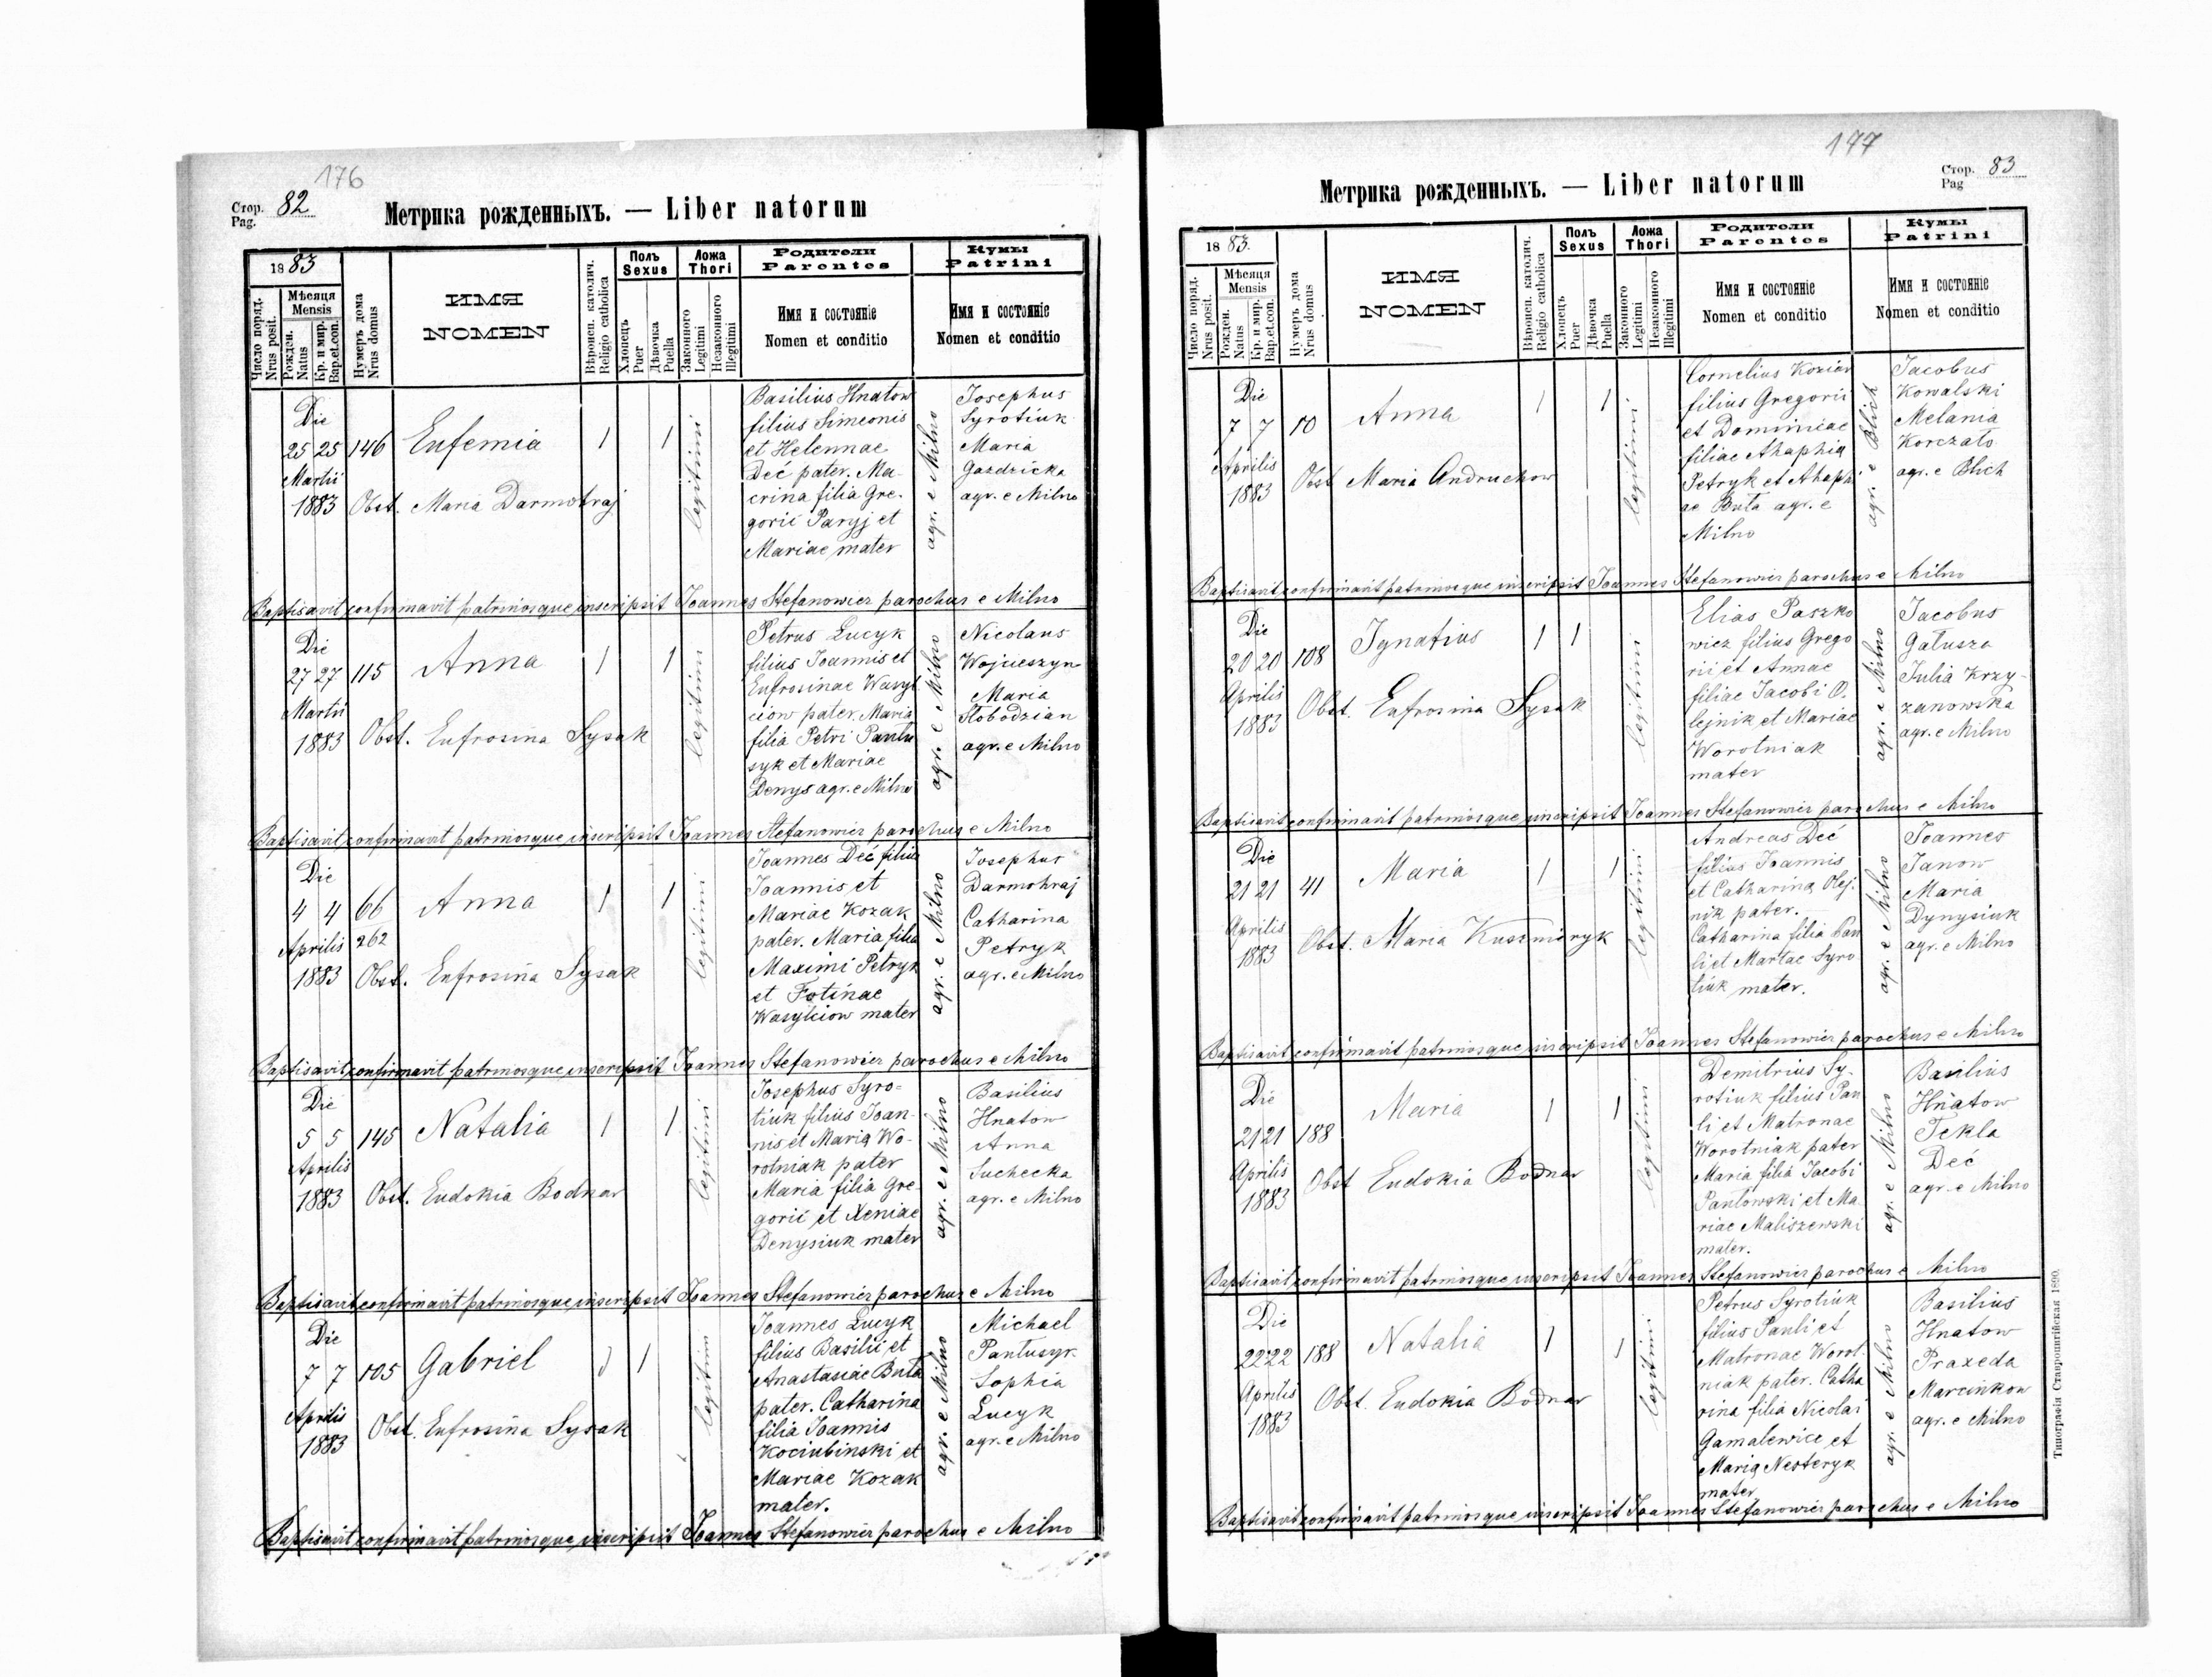 176
Стор. 82
Pag.
Метрика рожденныхъ. — Liber natorum
1883
Число поряд.
Nrus posit.
Мѣсяця
Mensis
Рожден.
Natus
Кр. и мир.
Bap.et.con.
Нумеръ дома
Nrus domus
ИМЯ
NOMEN
Вѣроисп. католич.
Religio catholica
Полъ
Sexus
Хлопецъ
Puer
Дѣвочка
Puella
Ложа
Thori
Законного
Legitimi
Незаконного
Illegitimi
Родители
Parentes
Имя и состояніе
Nomen et conditio
Кумы
Patrini
Имя и состояніе
Nomen et conditio
Die
25 25 146 Eufemia 1 1
Martii
1883 Obst. Maria Darmohraj
legitimi
Basilius Hnatow
filius Simeonis
et Helennae
Deć pater. Ma-
crina filia Gre-
gorii Paryj et
Mariae mater
agr. e Milno
Josephus
Syrotiuk
Maria
Gazdzicka
agr. e Milno
Baptisavit confirmavit patrinosque inscripsit Joannes Stefanowicz parochus e Milno
Die
27 27 115 Anna 1 1
Martii
1883 Obst. Eufrosina Sysak
legitimi
Petrus Lucyk
filius Joannis et
Eufrosinae Wasyl
ciow pater. Maria
filia Petri Pantu
syk et Mariae
Denys agr. e Milno
agr. e Milno
Nicolaus
Wojcieszyn
Maria
Słobodzian
agr. e Milno
Baptisavit confirmavit patrinosque inscripsit Joannes Stefanowicz parochus e Milno
Die
4 4 66 Anna 1 1
Aprilis 262
1883 Obst. Eufrosina Sysak
legitimi
Joannes Deć filius
Joannis et
Mariae Kozak
pater. Maria filia
Maximi Petryk
et Fotinae
Wasylciow mater
agr. e Milno
Josephus
Darmohraj
Catharina
Petryk
agr. e Milno
Baptisavit confirmavit patrinosque inscripsit Joannes Stefanowicz parochus e Milno
Die
5 5 145 Natalia 1 1
Aprilis
1883 Obst. Eudokia Bodnar
legitimi
Josephus Syro-
tiuk filius Joan-
nis et Maria Wo-
rotniak pater
Maria filia Gre-
gorii et Xeniae
Denysiuk mater
agr. e Milno
Basilius
Hnatow
Anna
Suchecka
agr. e Milno
Baptisavit confirmavit patrinosque inscripsit Joannes Stefanowicz parochus e Milno
Die
7 7 105 Gabriel 1 1
Aprilis
1883 Obst. Eufrosina Sysak
legitimi
Joannes Lucyk
filius Basilii et
Anastasiae Buta
pater. Catharina
filia Joannis
Kociubinski et
Mariae Kozak
mater.
agr. e Milno
Michael
Pantusyk
Sophia
Lucyk
agr. e Milno
Baptisavit confirmavit patrinosque inscripsit Joannes Stefanowicz parochus e Milno
177
Стор. 83
Pag
Метрика рожденныхъ. — Liber natorum
1883.
Число поряд.
Nrus posit.
Мѣсяця
Mensis
Рожден.
Natus
Кр. и мир.
Bap.et.con.
Нумеръ дома
Nrus domus
ИМЯ
NOMEN
Вѣроисп. католич.
Religio catholica
Полъ
Sexus
Хлопецъ
Puer
Дѣвочка
Puella
Ложа
Thori
Законного
Legitimi
Незаконного
Illegitimi
Родители
Parentes
Имя и состояніе
Nomen et conditio
Кумы
Patrini
Имя и состояніе
Nomen et conditio
Die
7 7 10 Anna 1 1
Aprilis
1883 Obst Maria Andruchow
legitimi
Cornelius Koziar
filius Gregorii
et Dominiae
filiae Ahaphia
Petryk et Ahaphi
ae Buta agr. e
Milno
agr. e Blich
Jacobus
Kowalski
Melania
Korczato
agr. e Blich
Baptisavit confirmavit patrinosque inscripsit Joannes Stefanowicz parochus e Milno
Die
20 20 108 Ignatius 1 1
Aprilis
1883 Obst. Eufrosina Sysak
legitimi
Elias Paszko
wicz filius Grego
rii et Annae
filiae Jacobi O.
lejnik et Mariae
Worotniak
mater
agr. e Milno
Jacobus
Gałusza
Julia Krzy-
zanowska
agr. e Milno
Baptisavit confirmavit patrinosque inscripsit Joannes Stefanowicz parochus e Milno
Die
21 21 41 Maria 1 1
Aprilis
1883 Obst. Maria Kuszniryk
legitimi
Andreas Deć
filius Joannis
et Catharina Olej-
nik pater.
Catharina filia Pau
li et Mariae Syro
tiuk mater.
agr. e Milno
Joannes
Janow
Maria
Dynysiuk
agr. e Milno
Baptisavit confirmavit patrinosque inscripsit Joannes Stefanowicz parochus e Milno
Die
21 21 188 Maria 1 1
Aprilis
1883 Obst Eudokia Bodnar
legitimi
Demitrius Sy-
rotiuk filius Pau
li et Matronae
Worotniak pater
Maria filia Jacobi
Pantowski et Ma
riae Maliszewski
mater.
agr. e Milno
Basilius
Hnatow
Tekla
Deć
agr. e Milno
Baptisavit confirmavit patrinosque inscripsit Joannes Stefanowicz parochus e Milno
Die
22 22 188 Natalia 1 1
Aprilis
1883 Obst. Eudokia Bodnar
legitimi
Petrus Syrotiuk
filius Pauli et
Matronae Worot-
niak pater. Catha
rina filia Nicolai
Gamalewice et
Maria Nesteryk
mater
agr. e Milno
Basilius
Hnatow
Praxeda
Marcinkow
agr. e Milno
Baptisavit confirmavit patrinosque inscripsit Joannes Stefanowicz parochus e Milno
Типографія Ставропигійская 1890.